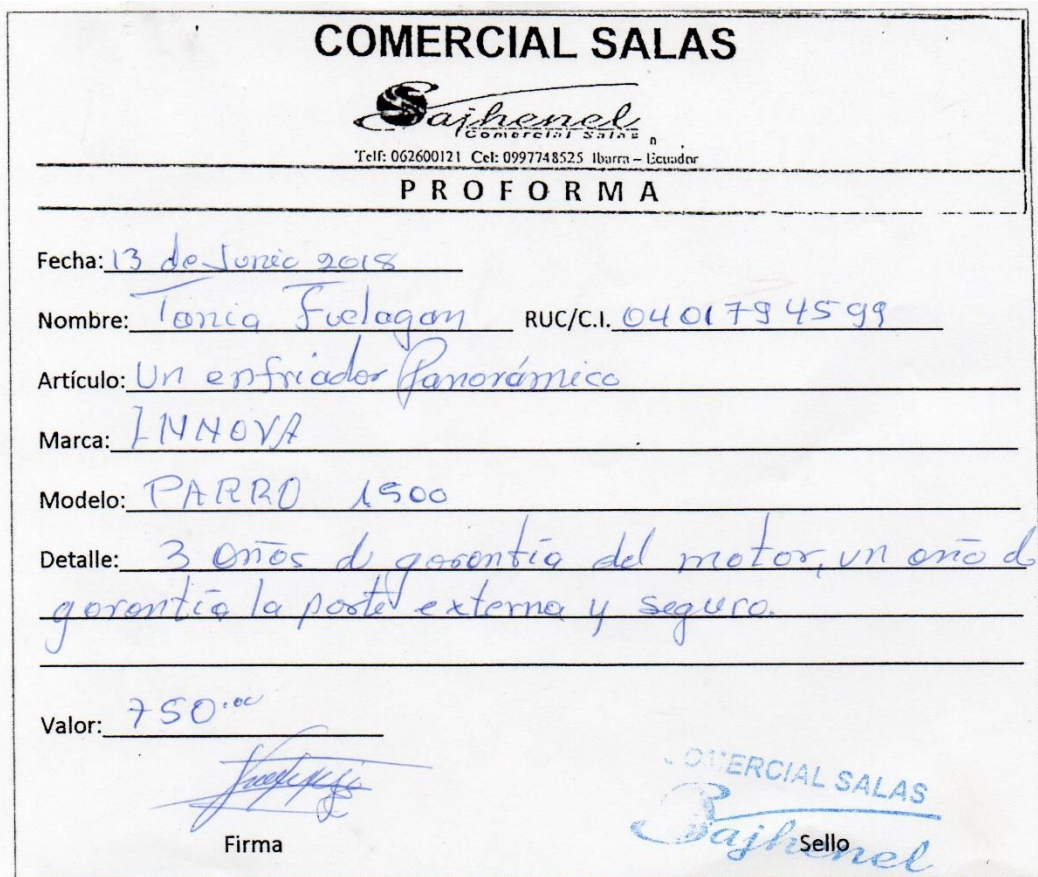 COMERCIAL SALAS
Sajhenel
Comercial Salas
Telf: 062600121 Cel: 0997748525 Ibarra – Ecuador
PROFORMA
Fecha: 13 de Junio 2018
Nombre: Tania Fuelagan RUC/C.I. 0401794599
Artículo: Un enfriador Panorámico
Marca: INNOVA
Modelo: PARRO 1500
Detalle: 3 años d garantía del motor, un año d
garantía la parte externa y seguro.
Valor: 750.00
COMERCIAL SALAS
Sajhenel
Firma Sello